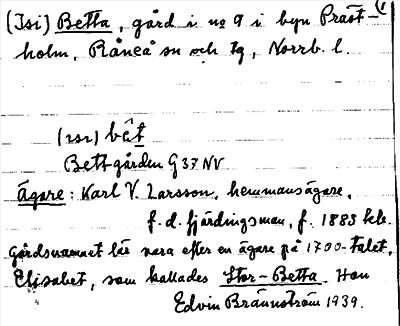 (Isi) Betta, gård i no 9 i byn Prast-
holm, Råneå sn och tg, Norrb. l.
(rsr) bèt
Bettgården G 37 NV
Ägare: Karl V. Larsson, hemmansägare,
f. d. fjärdingsman, f. 1883 kla.
Gårdsnamnet lär vara efter en ägare på 1700-talet,
Elisabet, som kallades Stor-Betta. Hon
Edvin Brännström 1939.